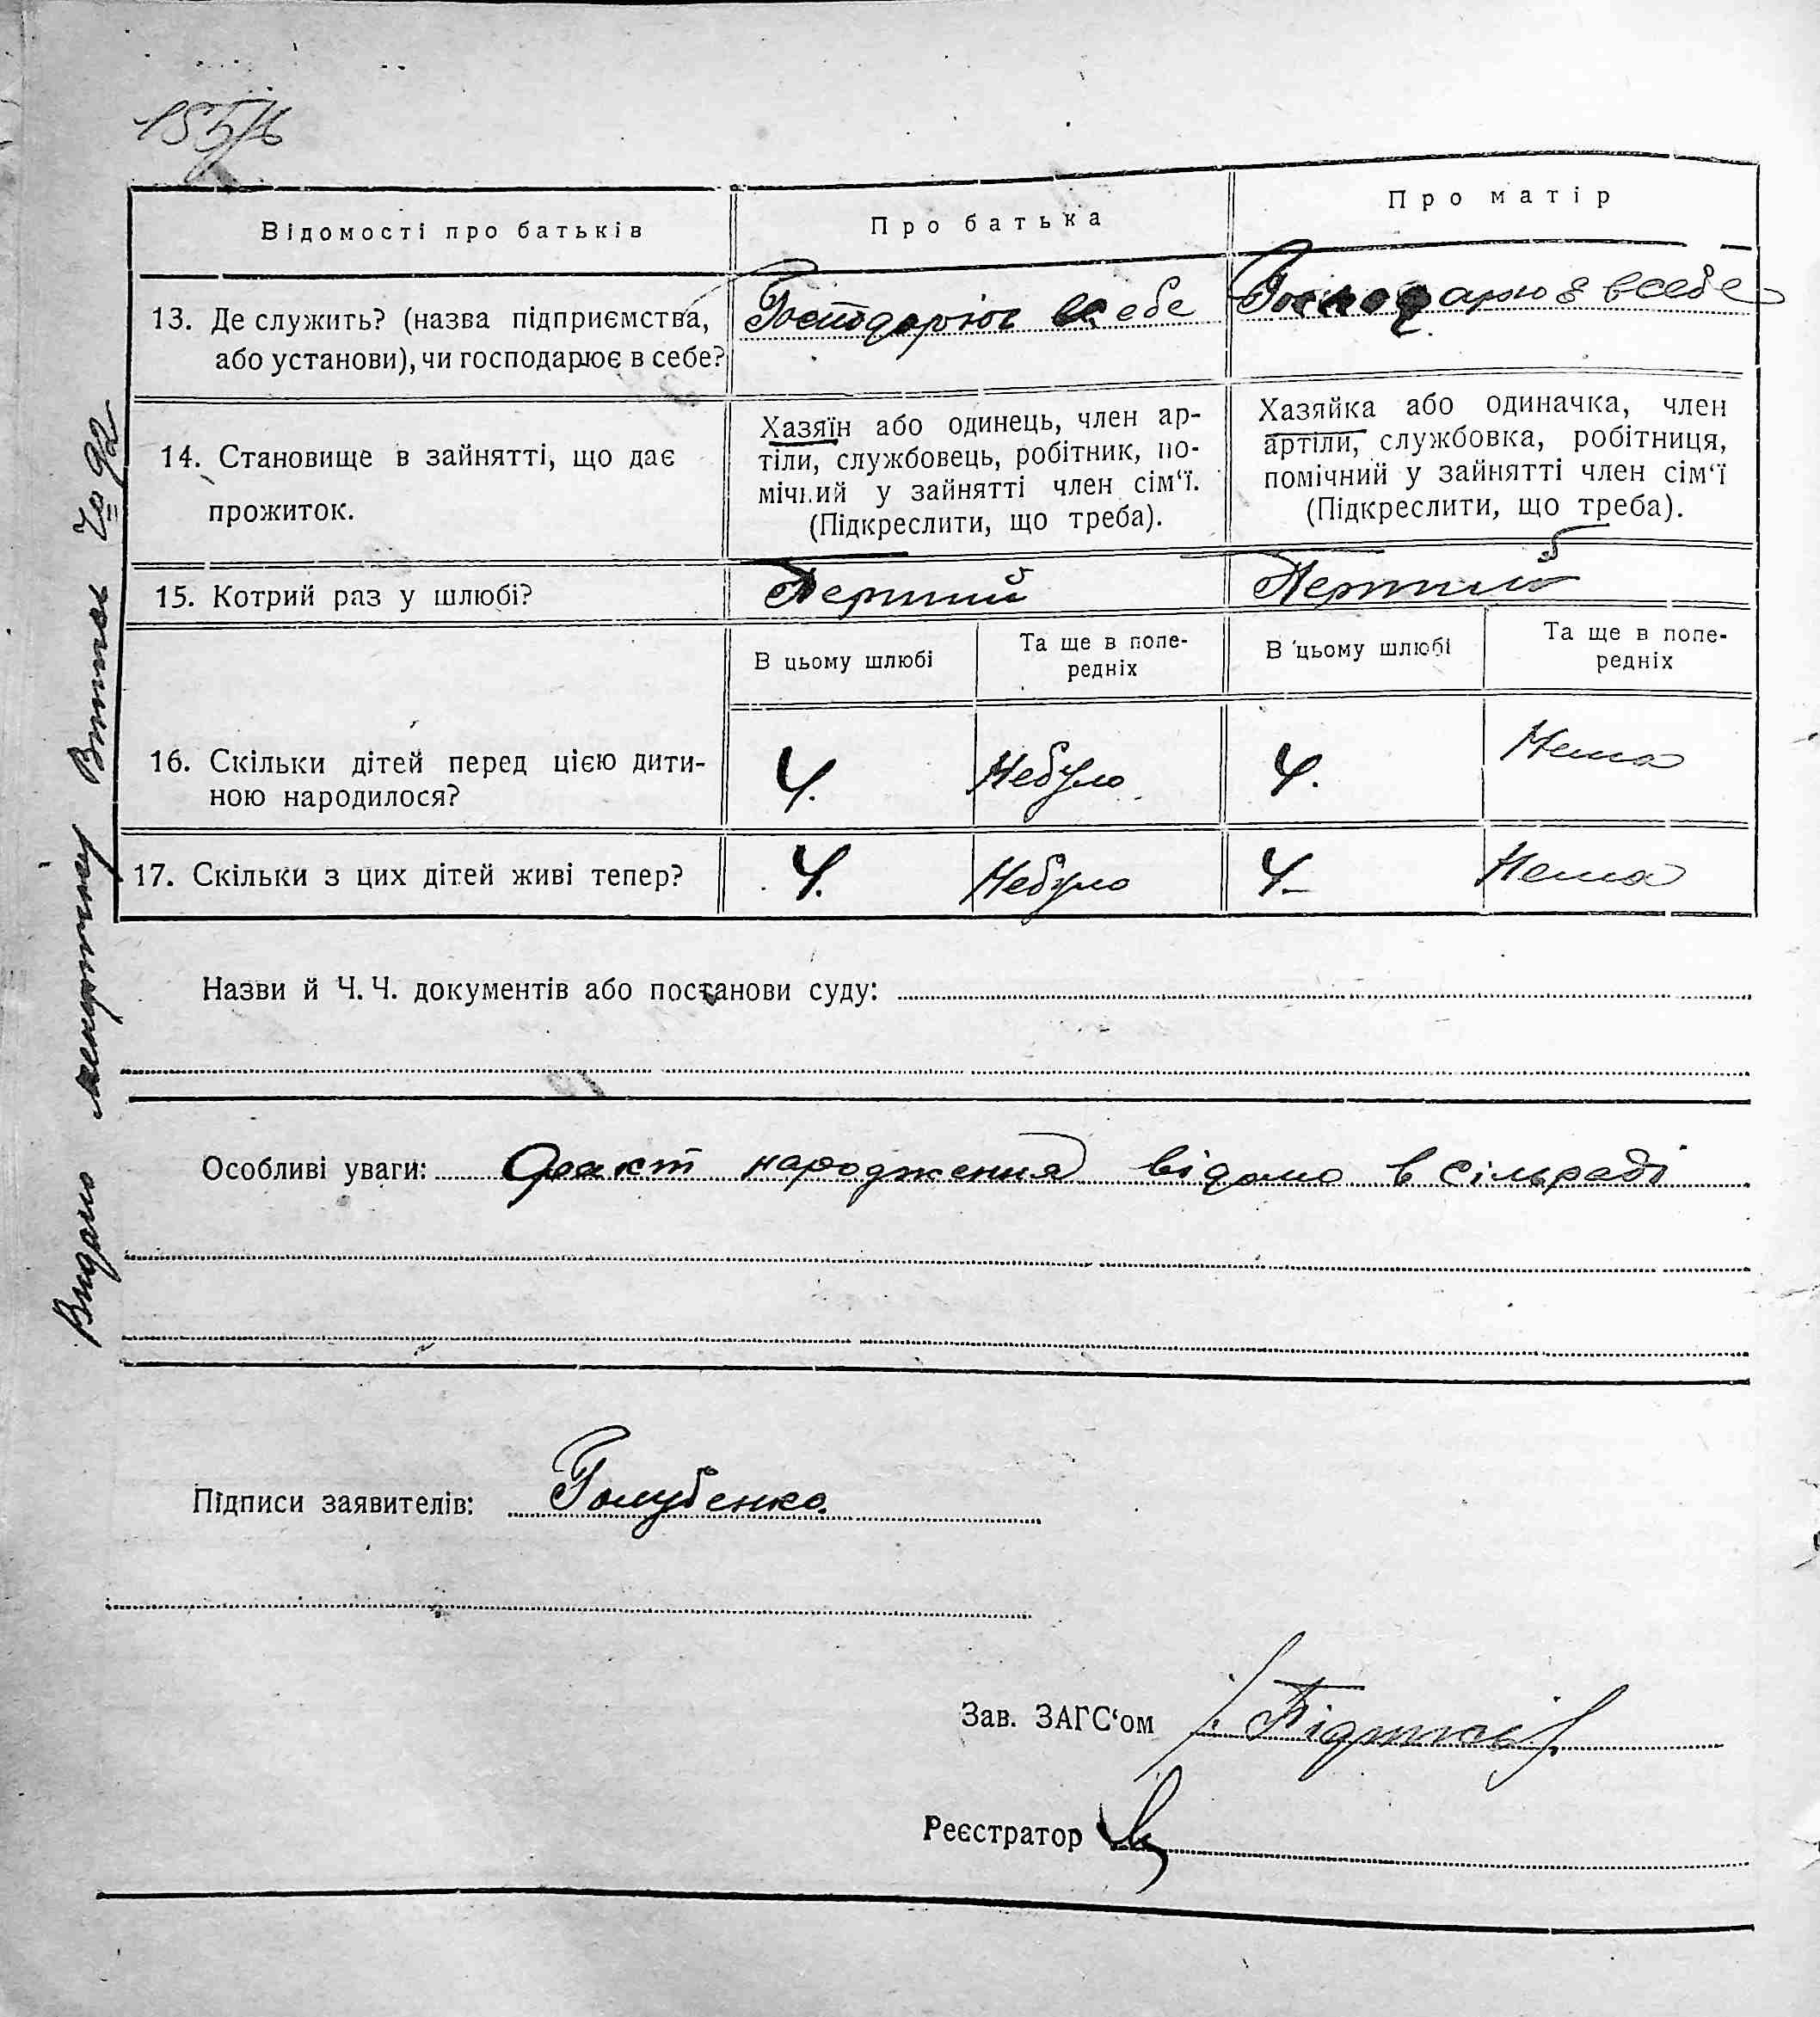 Відомості про батьків
Про батька
Про матір
13. Де служить? (назва підприємства,
або установи), чи господарює в себе?
Господарює в себе
Господарює в себе
14. Становище в зайнятті, що дає
прожиток.
Хазяїн або одинець, член ар-
тіли, службовець, робітник, по-
мічний у зайнятті член сім'ї.
(Підкреслити, що треба).
Хазяйка або одиначка, член
артіли, службовка, робітниця,
помічний у зайнятті член сім'ї
(Підкреслити, що треба).
15. Котрий раз у шлюбі?
Перший
Перший
В цьому шлюбі
Та ще в попе-
редніх
В цьому шлюбі
Та ще в попе-
редніх
16. Скільки дітей перед цією дити-
ною народилося?
4.
Небуло
4.
Нема
17. Скільки з цих дітей живі тепер?
4.
Небуло
4-
Нема
Назви й Ч. Ч. документів або постанови суду:
Особливі уваги: Факт народження відомо в сільраді
Підписи заявителів: Голубенко.
Зав. ЗАГС'ом /. Підпис /.
Реєстратор
Видано метрику Витяг